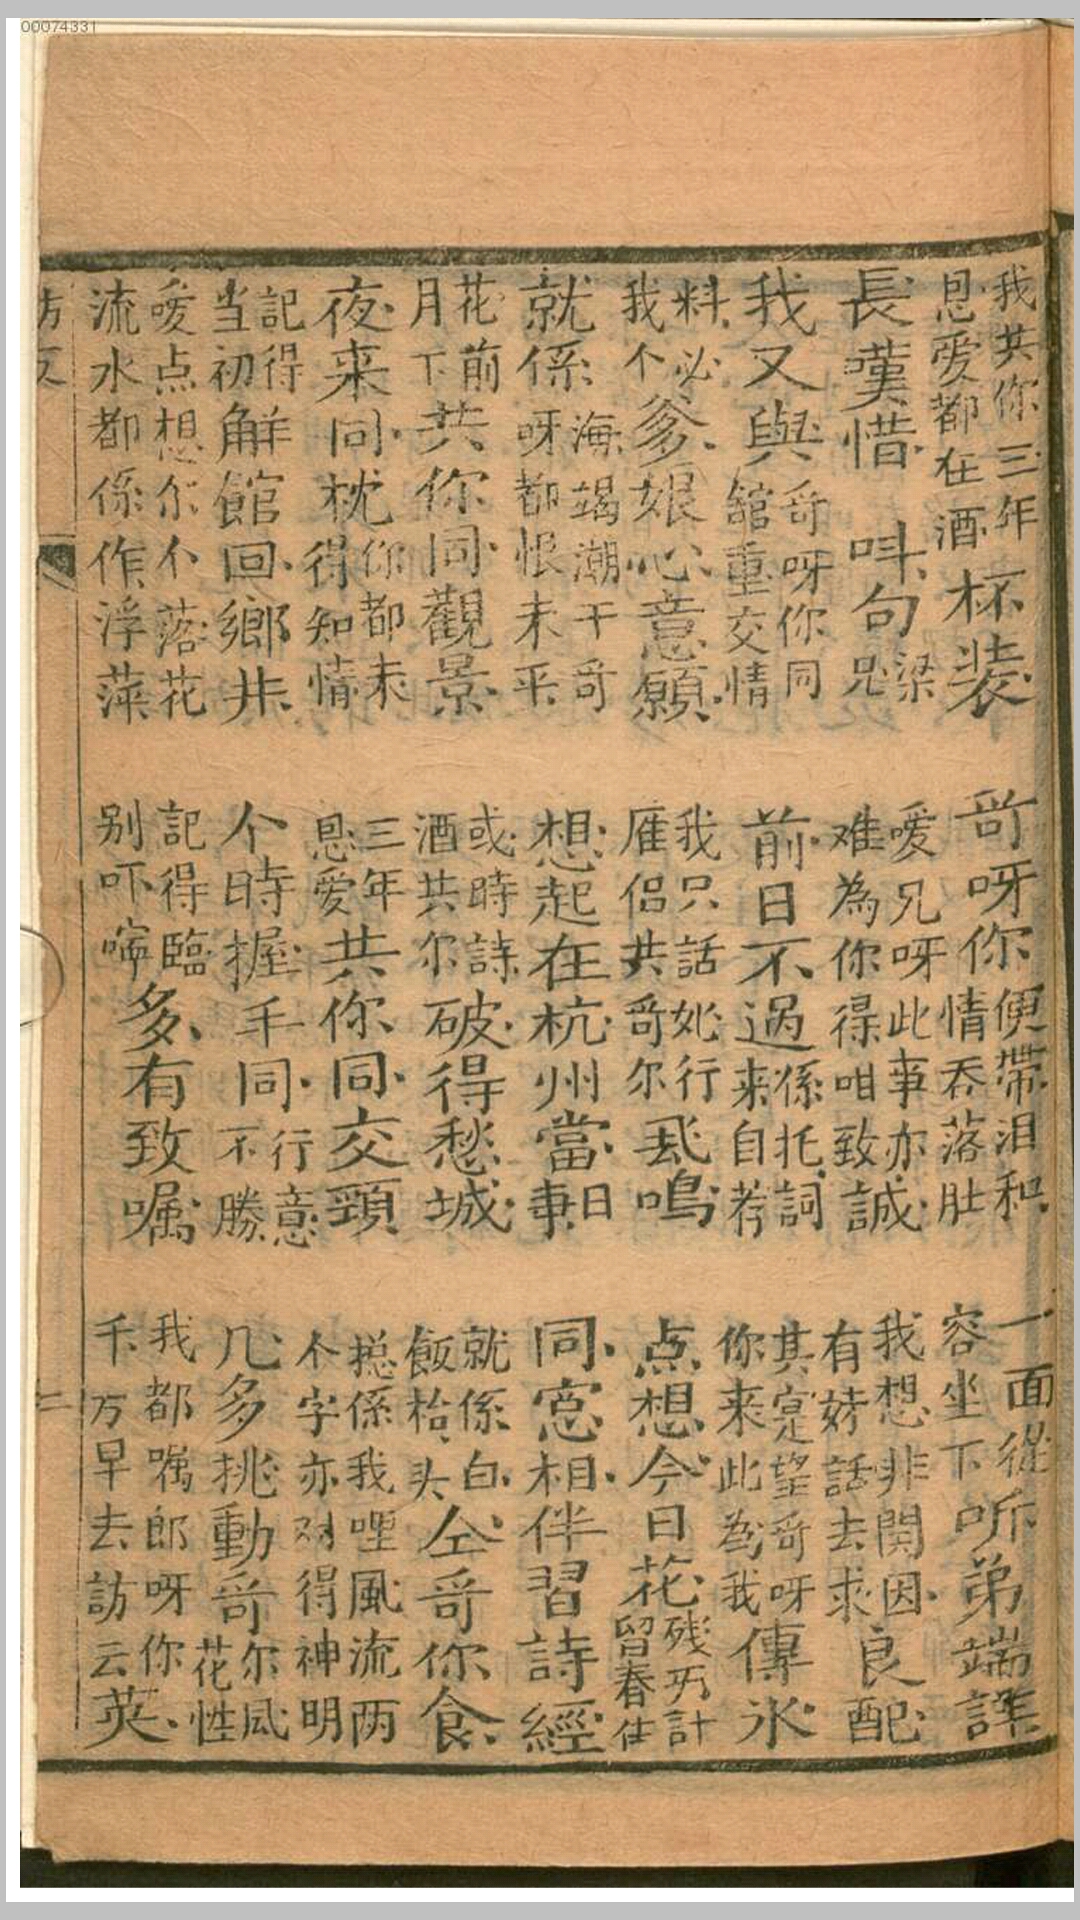 我共你三年恩愛都在酒杯装
哥呀你便帶泪和情吞落肚
一面從容坐下听弟端詳
長嘆惜叫句梁兄
噯兄呀此事亦难為你得咁致誠
我想非関因有好話去求良配
我又與哥呀你同舘重交情
前日不過係托詞来自荐
其寔望哥呀你来此為我傳氷
料必我个爹娘心意願
我只話姊行雁侣共哥尔飛鳴
点想今日花殘冇計留春住
就係海竭潮干哥呀都恨未平
想起在杭州當日事
同窓相伴習詩經
花前月下共你同觀景
或時詩酒共尔破得愁城
就係白飯枱头仝哥你食
夜来同枕你都未得知情
三年恩爱共你同交頸
搃係我哩風流两个字亦对得神明
記得当初觧館回鄉井
个時握手同行意不勝
几多挑動哥尔風花性
噯点想尔个落花流水都係作浮萍
記得臨别吓嚀多有致嘱
我都嘱郎呀你千万早去訪云英